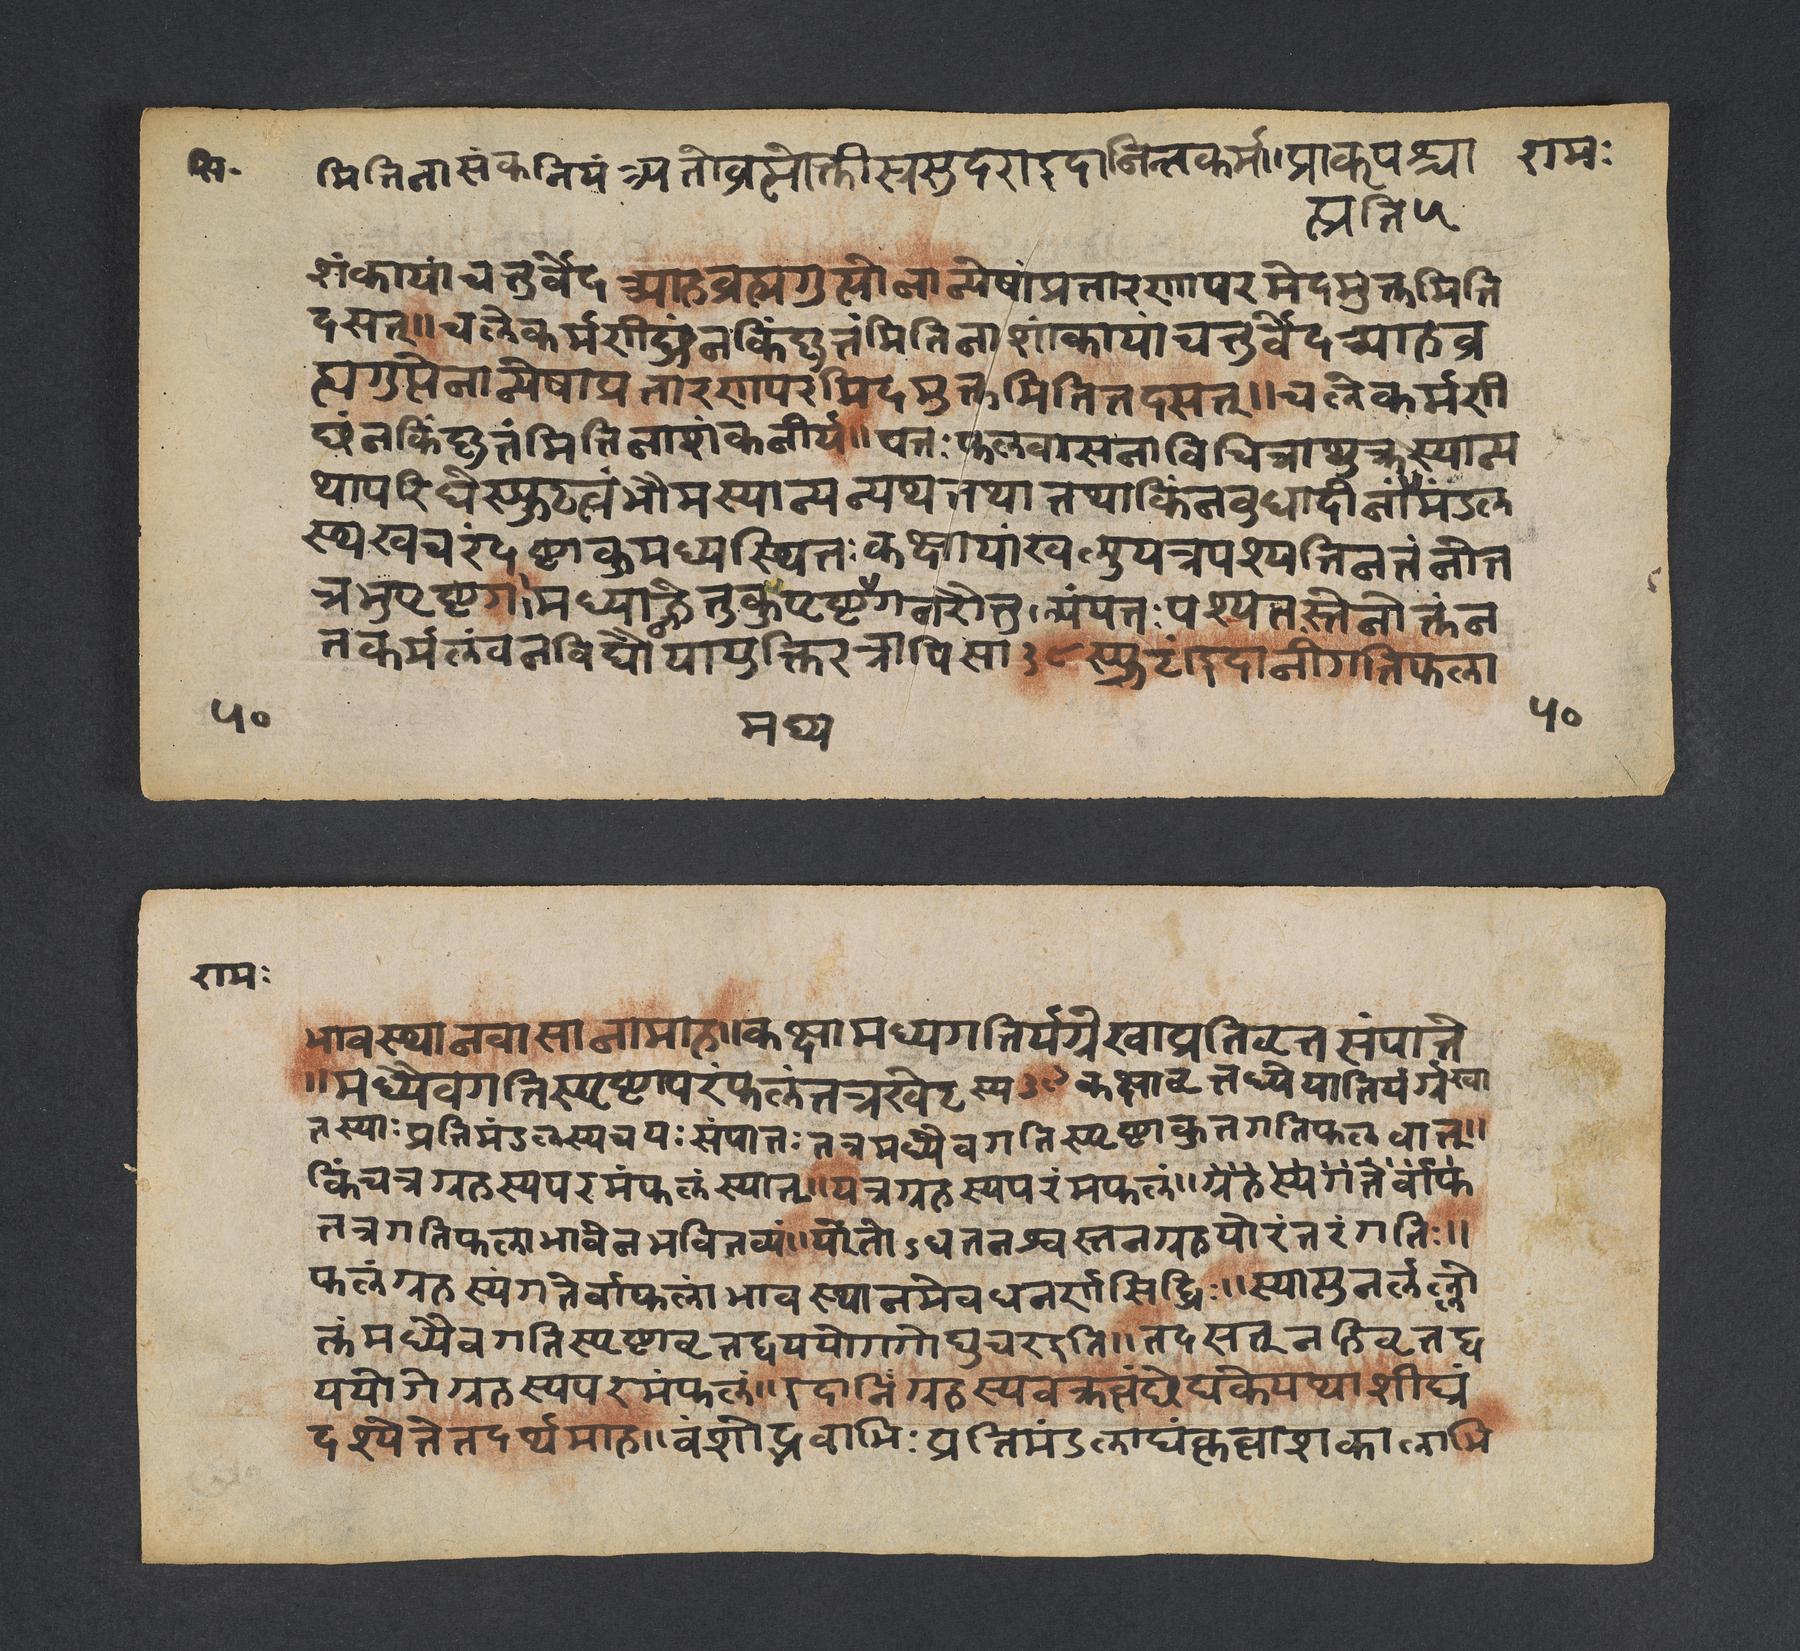 सि.
मितिनासंकनियंत्र्यतोब्रह्मोक्तीस्वसुदराइदानिन्तकर्म॥प्राक्पश्चा
रामः
त्प्रति५
शंकायांचतुर्वेदआहब्रह्मगुप्तोनान्येषांप्रतारणापरमेदमुक्तमिति
दसत्॥चलेकर्मणीघ्रंनकिंघृतंमितिनाशंकायांचतुर्वेदआहब्र
ह्मगुप्तेनान्येषाप्रतारणापरंमिदमुक्तमितितदसत्॥चलेकर्मणी
घ्रंनकिंघृतंमितिनाशंकनीयं॥यतःफलवासनाविचित्राथुक्तस्यान्य
थापरिधेस्फुटत्वंभौमस्यान्यन्यथतथातथाकिंनबुधादीनांमंडल
स्थखचरंदृष्टाकुमध्यस्थितःकक्षायांखलुयत्रपश्यतिनतंनीत
त्रभुपृष्टग।मध्याह्नेतुकुपृष्टगनरोतुल्यंयतःपश्यतस्तेनोक्तंन
तकर्मलंवनविधौयायुक्तिरत्रापिसा३८स्फुटं।इदानींगतिफला
५०
मध्य
५०
रामः
भावस्थानवासानामाह॥कक्षामध्यगतिर्यग्रेखाप्रतिवृत्तसंपाते
॥मध्यैवगतिस्पृष्टापरंफलंतत्रखेटस्य३९कक्षावृत्तध्येयातियंर्ग्रेखा
तस्याःप्रतिमंडलस्यचयःसंपातःतत्रमध्यैवगतिस्पृष्टाकुतगतिफलधात्॥
किंचत्रग्रहस्यपरमंफलंस्यात्॥यत्रग्रहस्यपरंमफलं॥ग्रहस्यगतेर्वाफ
तत्रगतिफलाभावेनभवितव्यं॥योतोऽधतनश्वस्तनग्रहयोरंतरंगतिः॥
फलंग्रहस्यंगतेर्वाफलांभावस्थानमेवधनर्णसिद्धिः॥स्यापुनर्लल्लो
त्तंमध्यैवगतिस्पृष्टावृत्तद्वययोगगोघुचरइति॥तदसत्नहिवृत्तद्व
ययोगेग्रहस्यपरमंफलं॥इदानिंग्रहस्यवक्रत्वंछेद्यकेयथाशीघ्रं
दृश्येतेतदर्थमाह॥वंशोद्भवाभिःप्रतिमंडलाघंकृत्वाशकालाभि